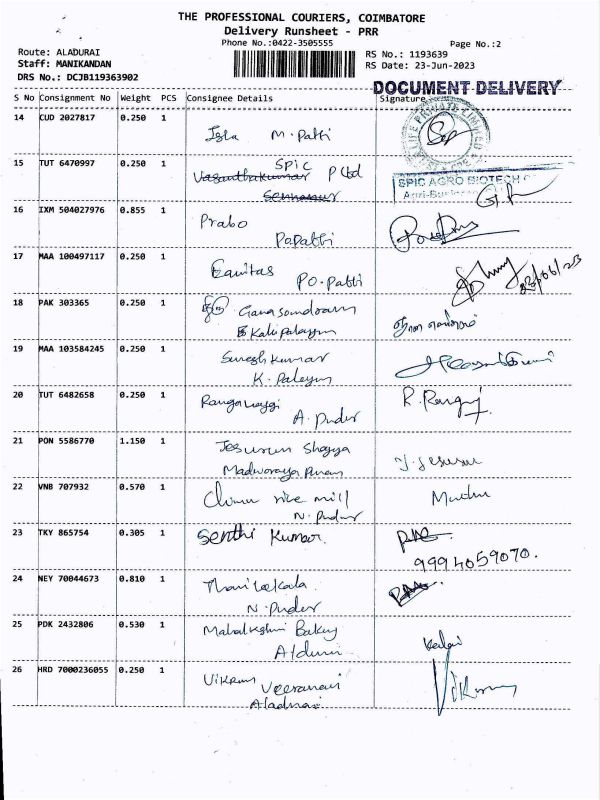 THE PROFESSIONAL COURIERS, COIMBATORE
Delivery Runsheet - PRR
Phone No.:0422-3505555
Page No.:2
Route: ALADURAI
RS No.: 1193639
Staff: MANIKANDAN
RS Date: 23-Jun-2023
DRS No.: DCJB119363902
DOCUMENT DELIVERY
S No Consignment No Weight PCS Consignee Details Signature
14 CUD 2027817 0.250 1
Isla M. Patti
15 TUT 6470997 0.250 1
SPIC
Vasanthakumar P Ltd
SPIC AGRO BIOTECH
16 IXM 504027976 0.855 1
Prabo
Papatti
17 MAA 100497117 0.250 1
Eanitas
PO. Patti
23/06/23
18 PAK 303365 0.250 1
Gana sundram
Kali Palayam
19 MAA 103584245 0.250 1
Suresh kumar
K. Palayam
20 TUT 6482658 0.250 1
A. Pudur
R. Rangaj
21 PON 5586770 1.150 1
Jesurun
J. Jesurun
22 VNB 707932 0.570 1
rice mill
N. Pudur
Muthu
23 TKY 865754 0.305 1
Senthi Kumar.
9994059070.
24 NEY 70044673 0.810 1
N. Pudur
25 PDK 2432806 0.530 1
Mahalakshmi Bakery
26 HRD 7000236055 0.250 1
Vikram Veeranari
Aladurai
Vikram